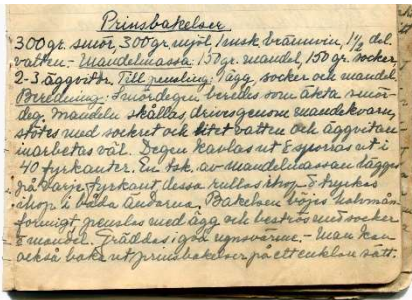 Prinsbakelser
300 gr. smör, 300 gr. mjöl, 1 msk. brännvin, 1½ del.
vatten. - Mandelmassa: 150 gr. mandel, 150 gr. socker,
2-3 äggvitor. Till pensling: 1 ägg, socker och mandel.
Beredning: Smördegen beredes som äkta smör-
deg. Mandeln skållas, drives genom mandelkvarn,
stötes med sockret och litet vatten och äggvitan
inarbetas väl. Degen kavlas ut & sporras ut i
40 fyrkanter. En tsk. av mandelmassan lägges
på varje fyrkant dessa rullas ihop & tryckas
ihop i båda ändarna. Bakelsen böjes halvmån-
formigt penslas med ägg och beströs med socker
& mandel. Gräddas i god ugnsvärme. - Man kan
också baka ut prinsbakelser på ett enklare sätt.